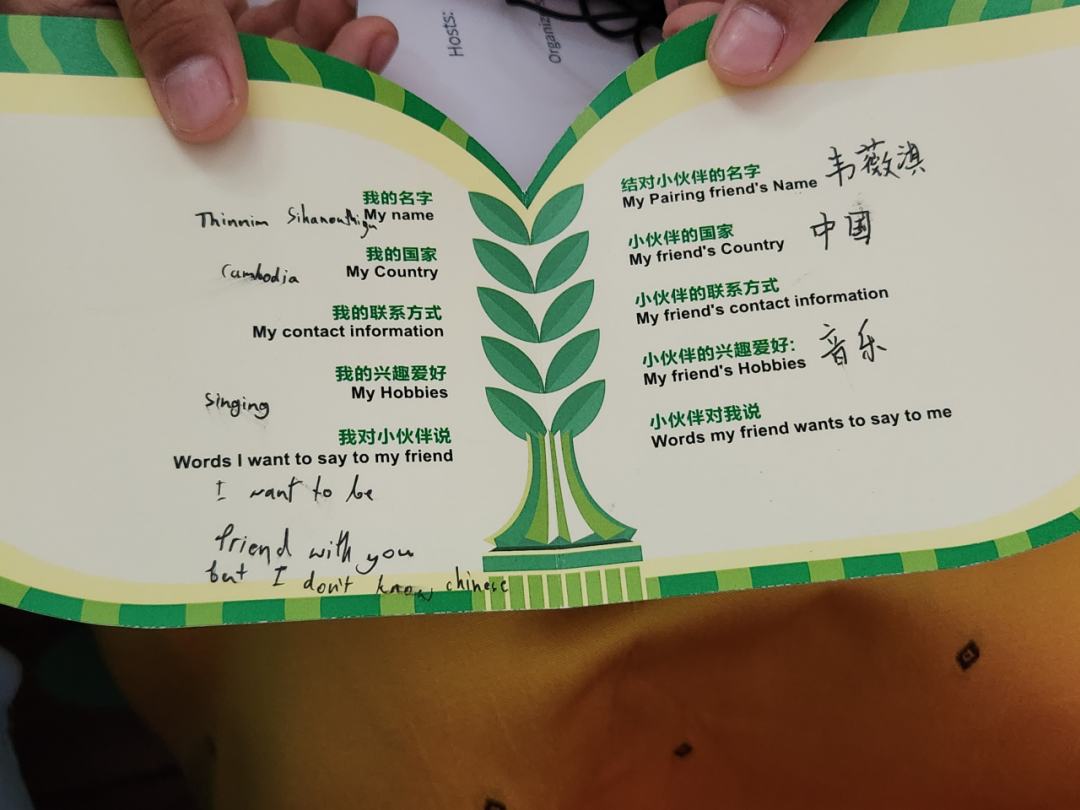 Hosts:
Organiz
我的名字
My name
Thinnim
我的国家
My Country
Cambodia
我的联系方式
My contact information
我的兴趣爱好
My Hobbies
Singing
我对小伙伴说
Words I want to say to my friend
I want to be
friend with you
but I don't know chinese
结对小伙伴的名字
My Pairing friend's Name 韦薇淇
小伙伴的国家
My friend's Country 中国
小伙伴的联系方式
My friend's contact information
小伙伴的兴趣爱好:
My friend's Hobbies 音乐
小伙伴对我说
Words my friend wants to say to me